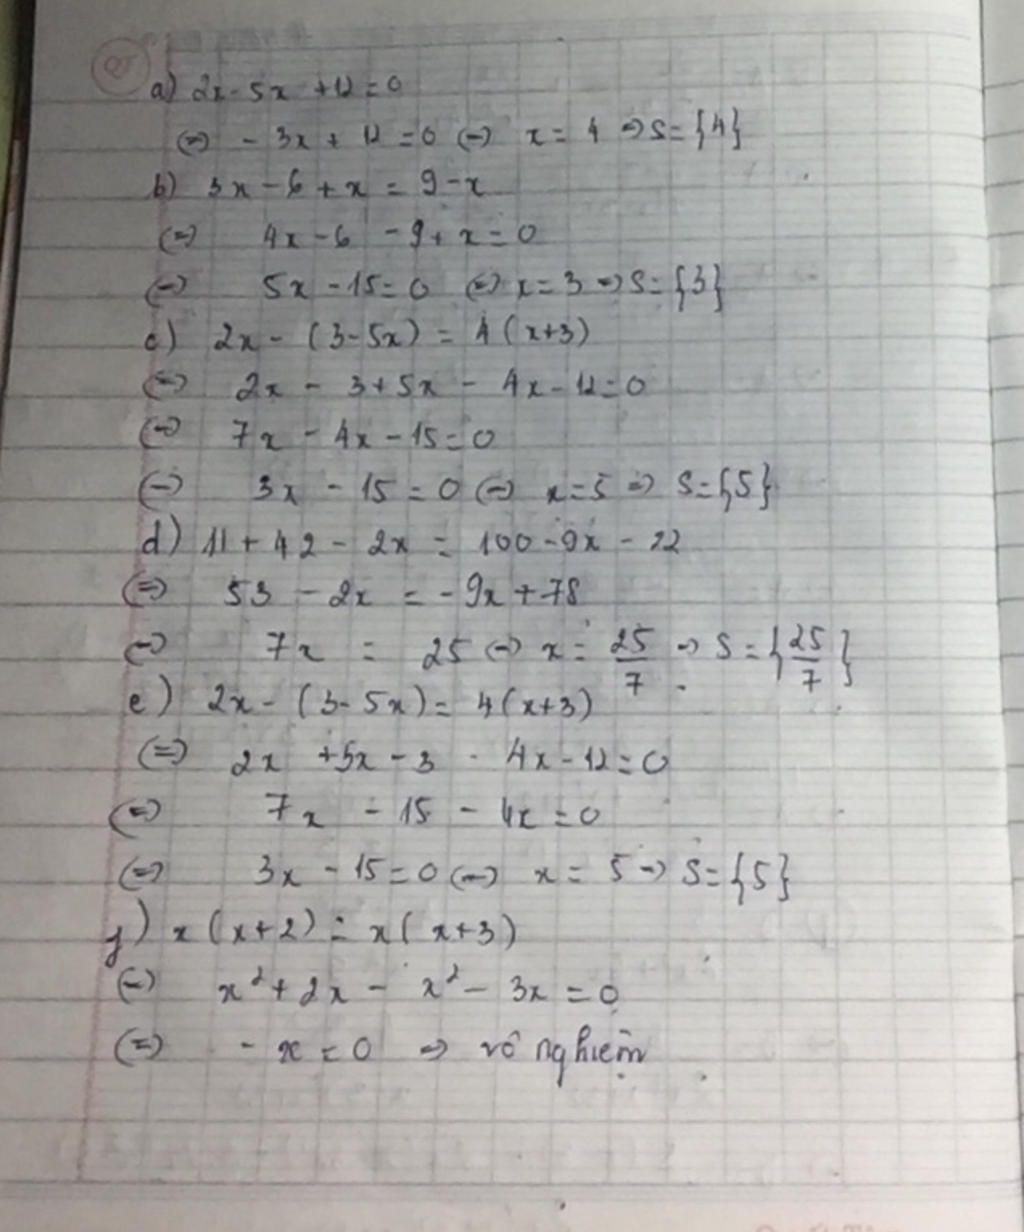 a) 2x - 5x + 12 = 0
(=) - 3x + 12 = 0 (=) x = 4 => S = {4}
b) 3x - 6 + x = 9 - x
(=) 4x - 6 - 9 + x = 0
(=) 5x - 15 = 0 (=) x = 3 => S = {3}
c) 2x - (3 - 5x) = 4(x+3)
(=) 2x - 3 + 5x - 4x - 12 = 0
(=) 7x - 4x - 15 = 0
(=) 3x - 15 = 0 (=) x = 5 => S = {5}
d) 11 + 42 - 2x = 100 - 9x - 22
(=) 53 - 2x = - 9x + 78
(=) 7x = 25 (=) x = 25/7 => S = {25/7}
e) 2x - (3 - 5x) = 4(x+3)
(=) 2x + 5x - 3 - 4x - 12 = 0
(=) 7x - 15 - 4x = 0
(=) 3x - 15 = 0 (=) x = 5 => S = {5}
f) x(x+2) = x(x+3)
(=) x² + 2x - x² - 3x = 0
(=) - x = 0 => vô nghiệm